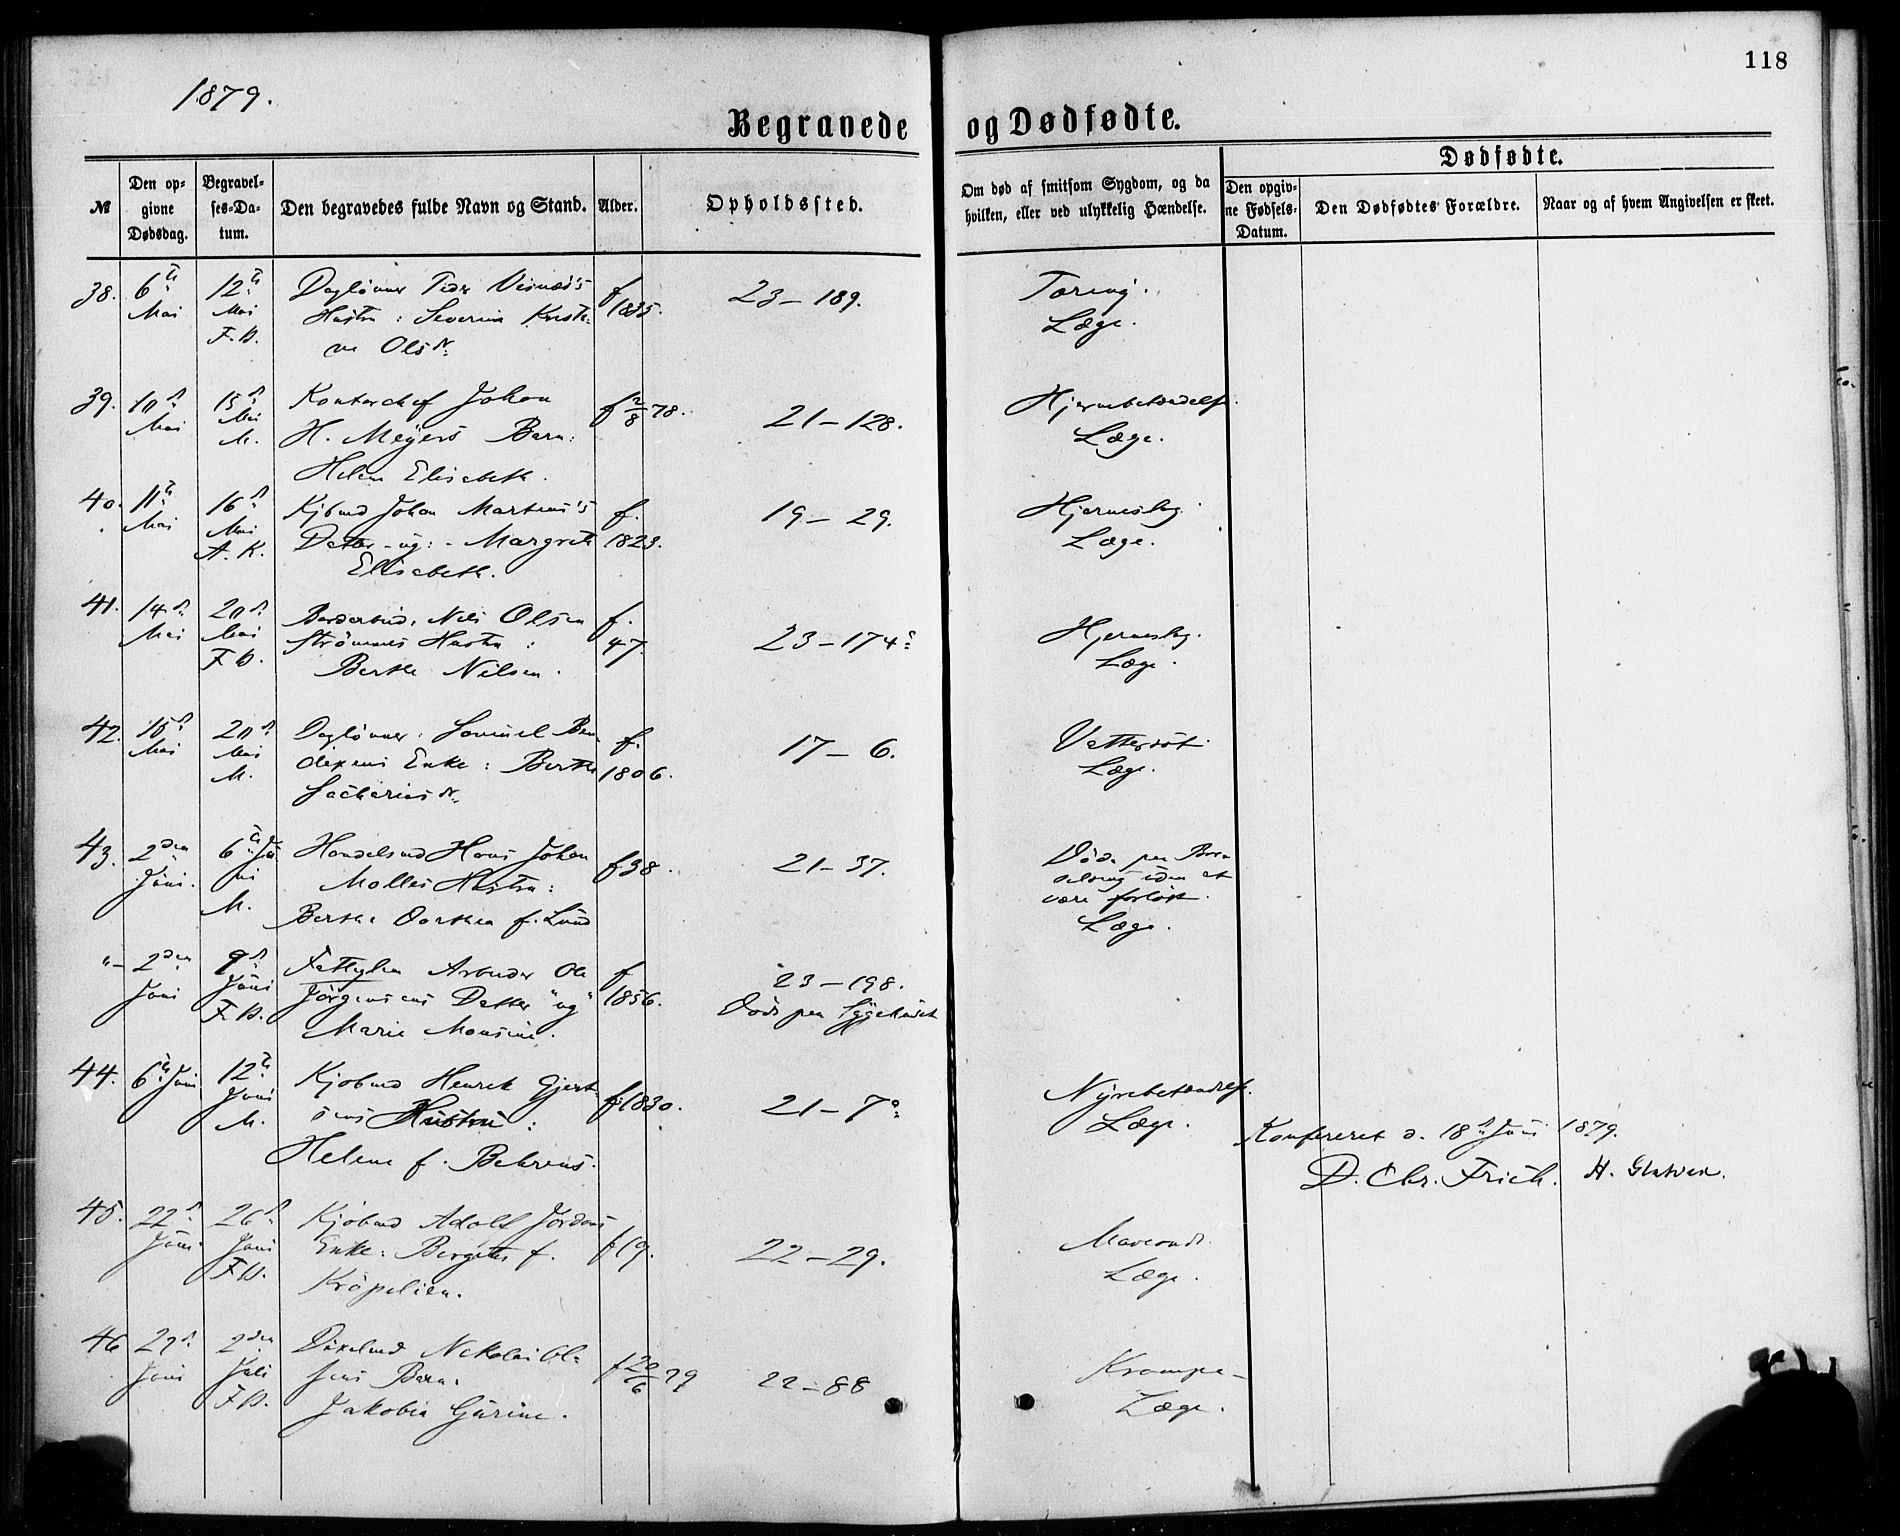 118
1879.
Begravede og Dødfødte.
№
Den opgivne Dødsdag.
Begravelses-Datum.
Den begravedes fulde Navn og Stand.
Alder.
Opholdssted.
Om død af smitsom Sygdom, og da hvilken, eller ved ulykkelig Hændelse.
Dødfødte.
Den opgivne Fødsels-Datum.
Den Dødfødtes Forældre.
Naar og af hvem Angivelsen er skeet.
38. 6te 12te Daglønner Peder f 23 – 189. Tæring.
Mai Mai Hustru: Severine Kristi- 1835. Læge.
F.B. ne Olsdr
39. 10de 15de Kontorchef Johan f 2/8 78. 21 – 128. Hjernebetændelse.
Mai Mai H. Meyers Barn: Læge.
M. Helene Elisabeth.
40. 11te 16de Kjøbmd Johan Martens's f. 19 – 29. Hjerneslag.
Mai Mai Datter - ug: - Margrete 1823. Læge.
A. K. Elisabeth.
41. 14de 20de Niels Olsen f. 23 – 174 Hjerneslag.
Mai Mai Strømmes Hustru: 47. Læge.
F.B. Berthe Nilsen.
42. 15de 20de Daglønner Samuel Ben- f. 17 – 6. Vattersot.
Mai Mai dixens Enke: Berthe 1806. Læge.
M. Sachariasdr
43. 2den 6te Ju- Handelsmd Hans Johan f 38. 21 – 37. Døde paa Bar-
Juni. ni Molles Hustru: selseng uden at
M. Berthe Dorthea f. Lund være forløst.
Læge.
"– 2den 9de Fattiglem Arbeider Ole f 23 – 198.
Juni Juni Jørgensens Datter "ug" 1856. Døde paa Sygehuset
F.B. Marie Monsine.
44. 6te Juni 12te Kjøbmd Henrik Gjert- f. 1830. 21 – 7 Nyrebetændelse.
Juni sens Hustru: Læge.
M. Helene f. Behrens.
Konfereret d. 18de Juni 1879.
D. Chr. Frich. H.
45. 22de 26de Kjøbmd Adolf Jordans f 19. 22 – 29. Maveonde.
Juni Juni Enke: Bergitte f. Læge.
F.B. Krøpelien.
46 29de 2den Nikolai Ol- f 20/6 79 22 – 88 Krampe –
Juni Juli sens Barn: Læge.
F.B. Jakobia Gurine.